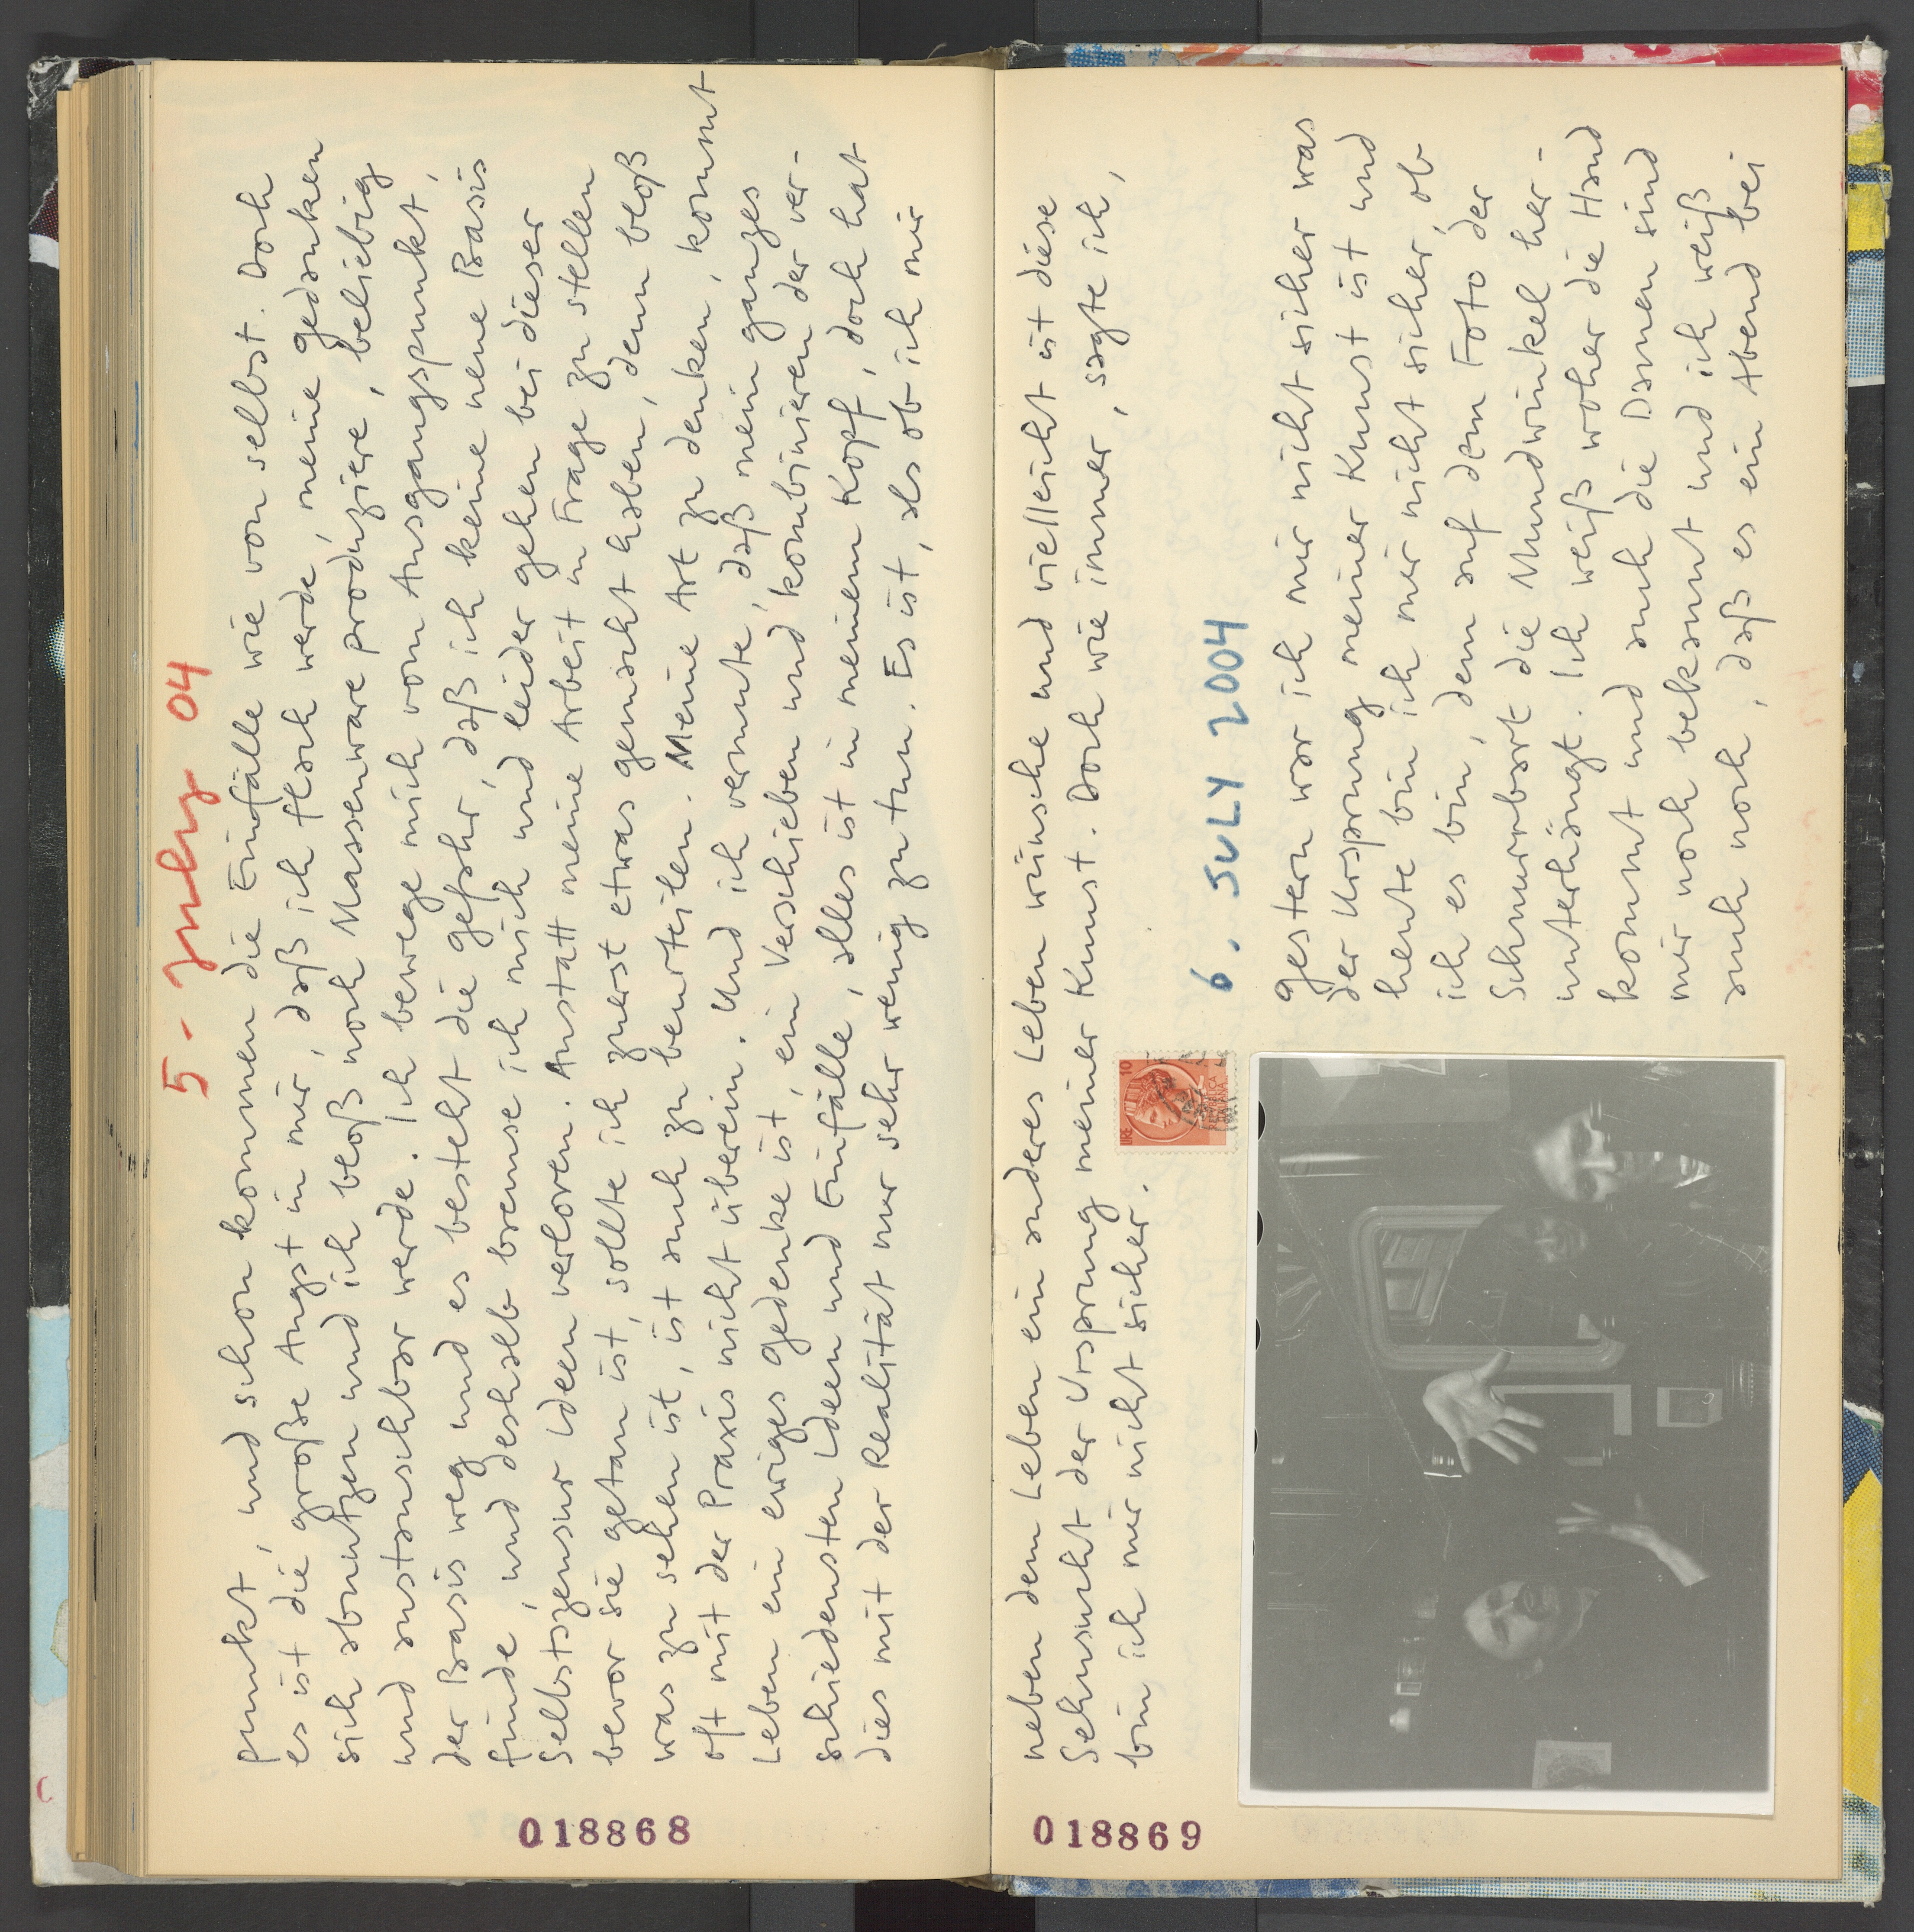 5. July 04
punkt, und schon kommen die Einfälle wie von selbst. Doch
es ist die große Angst in mir, daß ich flach werde, meine Gedanken
sich abnutzen und ich bloß noch Massenware produziere, beliebig
und austauschbar werde. Ich bewege mich vom Ausgangspunkt,
der Basis weg und es besteht die Gefahr, daß ich keine neue Basis
finde, und deshalb bremse ich mich und leider gehen bei dieser
Selbstzensur Ideen verloren. Anstatt meine Arbeit in Frage zu stellen
bevor sie getan ist, sollte ich zuerst etwas gemacht haben, denn bloß
was zu sehen ist, ist auch zu beurteilen. Meine Art zu denken, kommt
oft mit der Praxis nicht überein. Und ich vermute, daß mein ganzes
Leben ein ewiges Gedenke ist, ein Verschieben und kombinieren der ver-
schiedensten Ideen und Einfälle, alles ist in meinem Kopf, doch hat
dies mit der Realität nur sehr wenig zu tun. Es ist, als ob ich mir
018868
neben dem Leben ein anderes Leben wünsche und vielleicht ist diese
Sehnsucht der Ursprung meiner Kunst. Doch wie immer, sagte ich,
bin ich mir nicht sicher.
LIRE 10
6. JULY 2004
Gestern war ich mir nicht sicher was
der Ursprung meiner Kunst ist und
heute bin ich mir nicht sicher, ob
ich es bin, dem auf dem Foto der
Schnurrbart die Mundwinkel her-
unterhängt. Ich weiß woher die Hand
kommt und auch die Damen sind
mir noch bekannt und ich weiß
auch noch, daß es ein Abend bei
018869